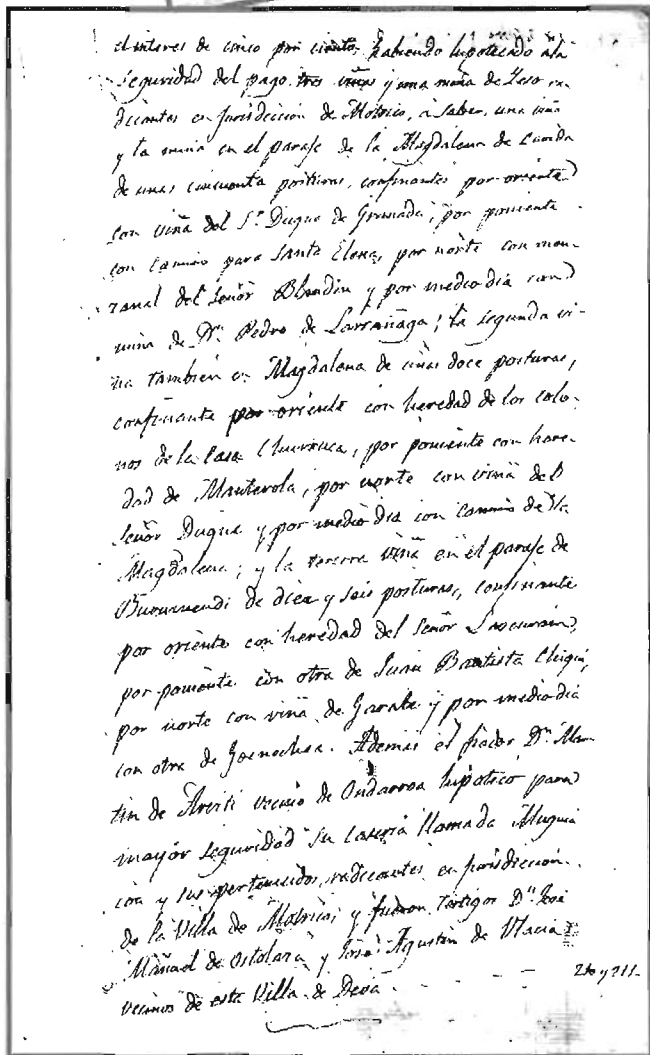 el interes de cinco por ciento, habiendo hipotecado a la
seguridad del pago tres viñas y una mina de Yeso ra-
dicantes en Jurisdiccion de Motrico, a saber, una viña
y la mina en el paraje de la Magdalena de
de unas cincuenta posturas, confinantes por oriente
con viña del Sr. Duque de Granada, por poniente
con camino para Santa Elena, por norte con man-
zanal del Señor Blandin y por medio dia con
viña de Dn. Pedro de Larrañaga; la segunda vi-
ña tambien en Magdalena de unas doce posturas,
confinante por oriente con heredad de los colo-
nos de la Casa Churruca, por poniente con here-
dad de Manterola, por norte con viña del
Señor Duque y por medio dia con camino de la
Magdalena; y la tercera viña en el paraje de
de diez y seis posturas, confinante
por oriente con heredad del Señor
por poniente con otra de Juan Bautista
por norte con viña de Garate y por medio dia
con otra de Goenechea. Ademas el fiador Dn. Mar-
tin de vecino de Ondarroa hipotecó para
mayor seguridad su caseria llamada
y sus pertenecidos radicantes en jurisdiccion
de la Villa de Motrico, y fueron testigos Dn. José
Manuel de Ostolaza y José Agustin de Ulacia
vecinos de esta Villa de Deva
210 y 211.